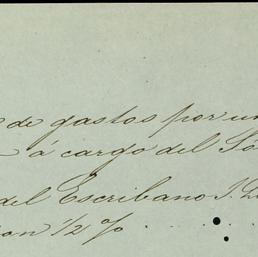 de gastos por un
á cargo del
del Escribano J.
on 1/2 %